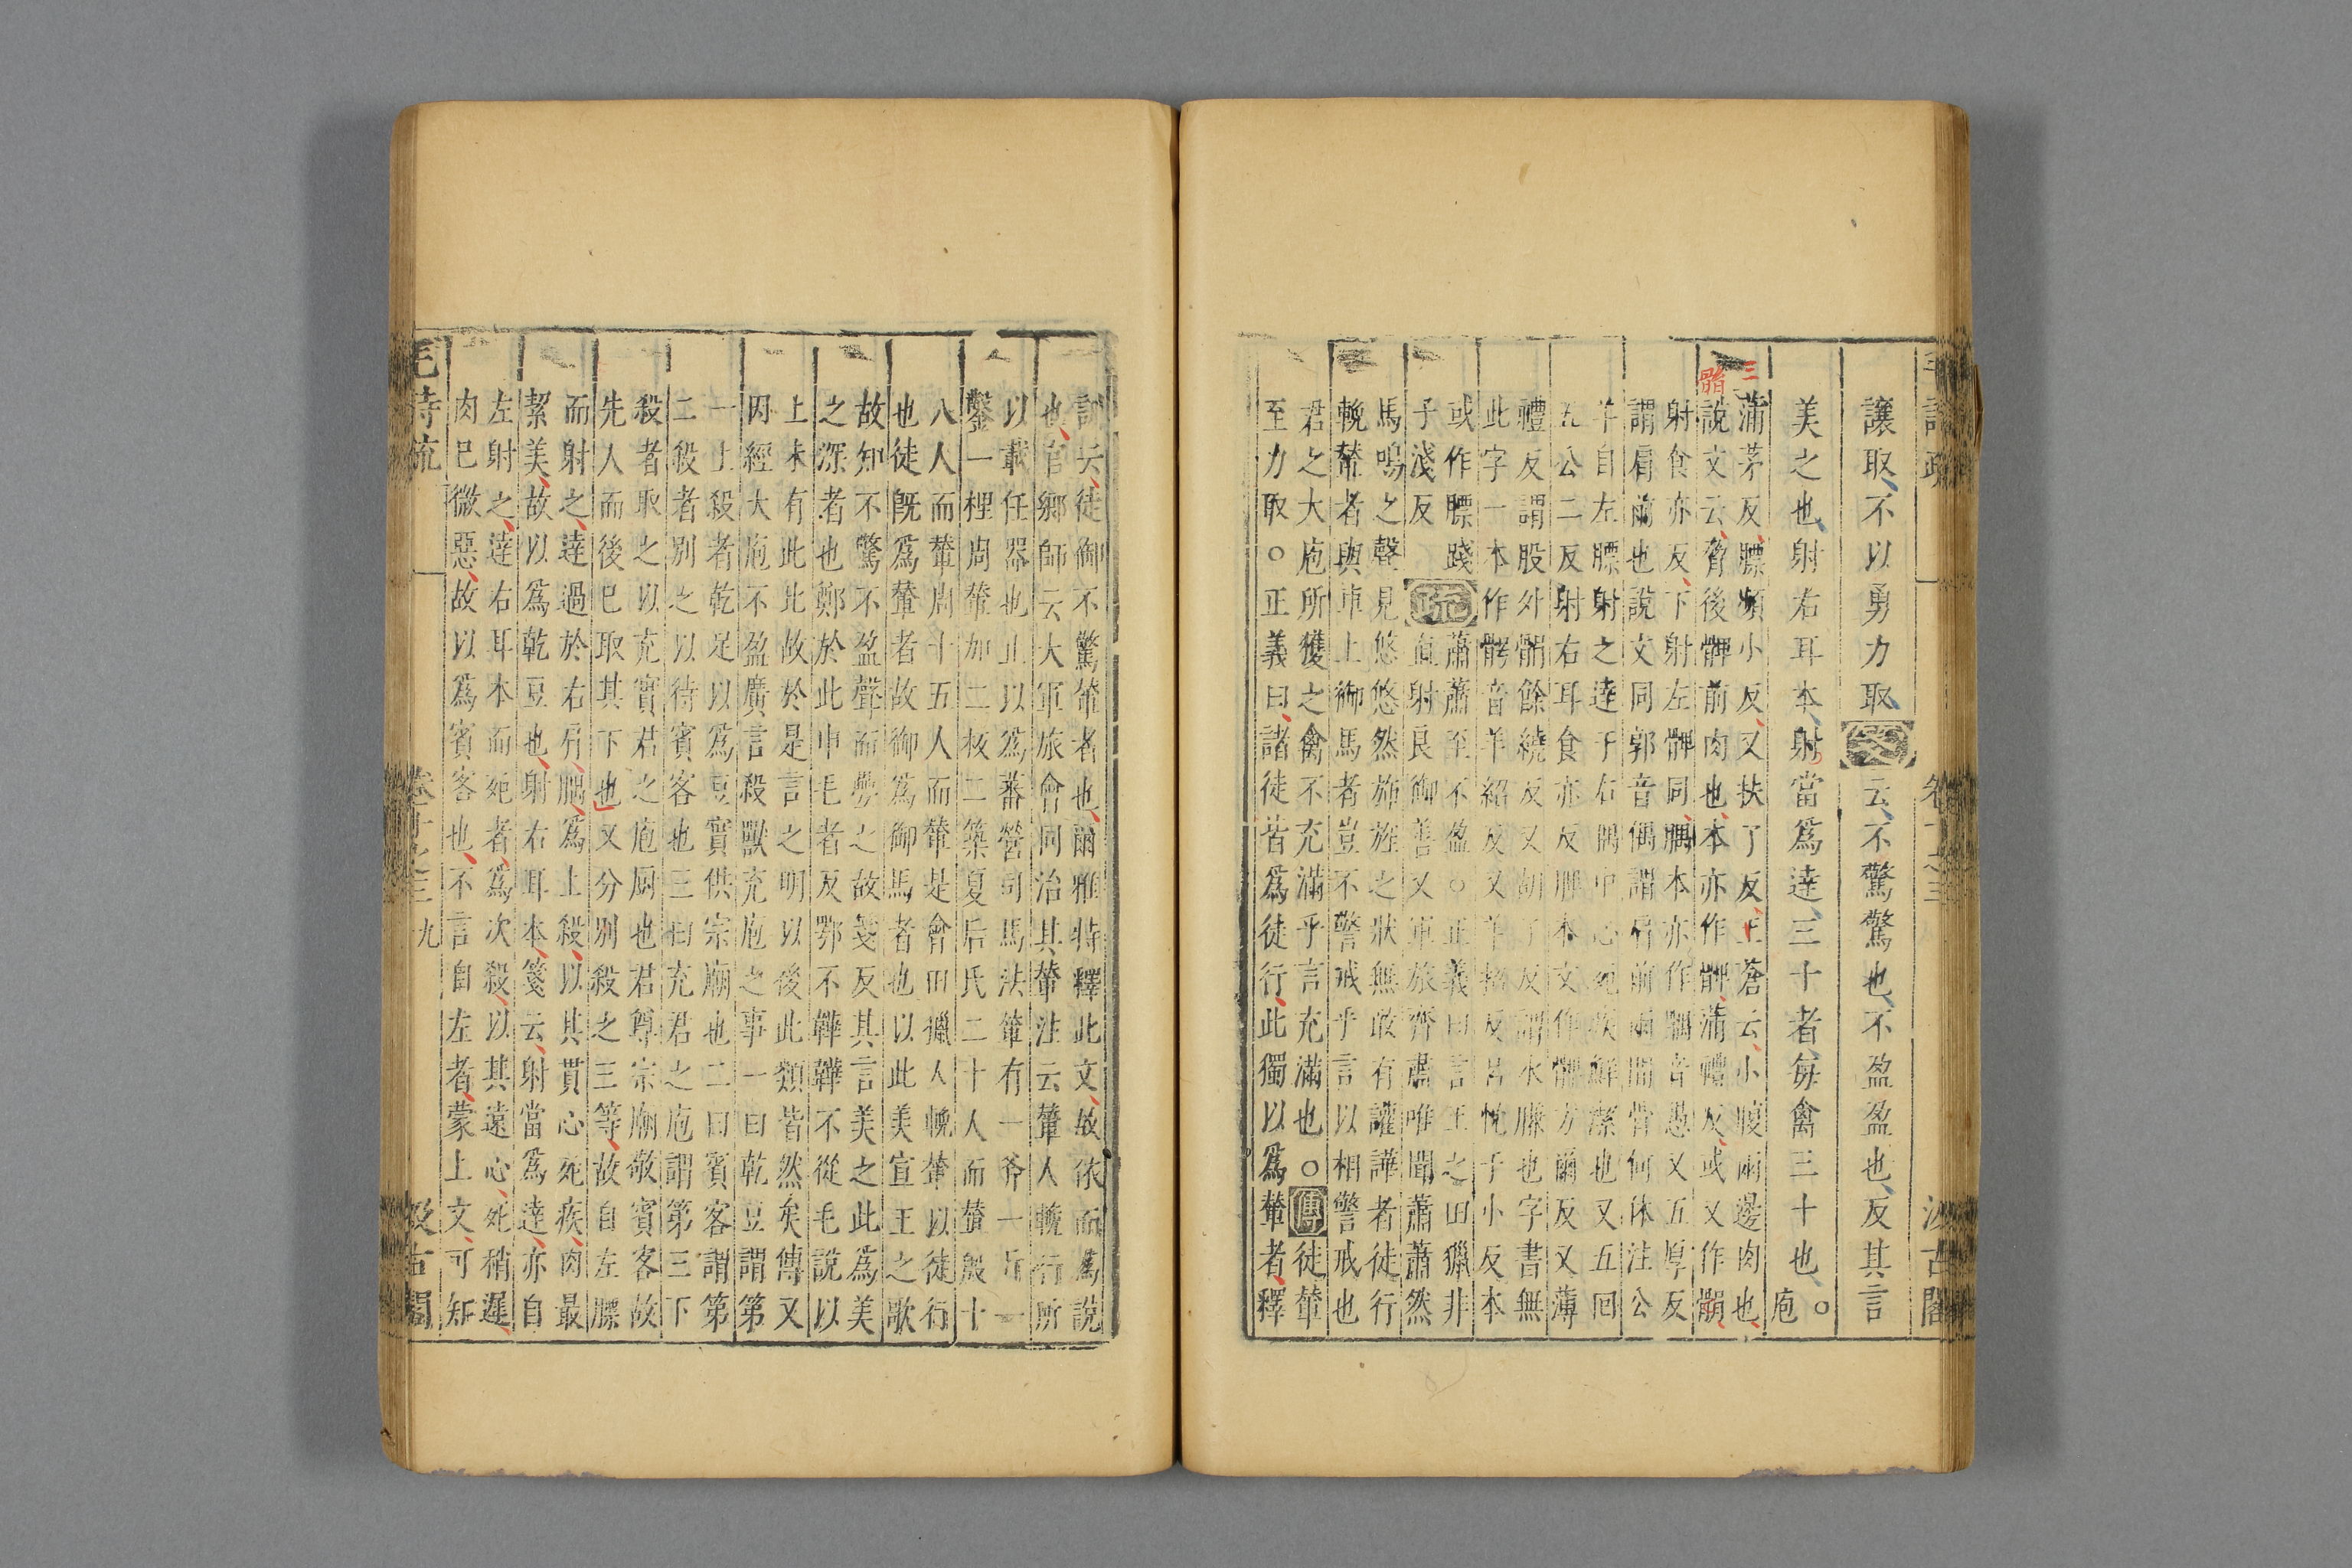 詩疏
卷十之三
汲古閣
讓取不以勇力取箋云不驚驚也不盈盈也反其言
美之也射右耳本射當爲達三十者每禽三十也○庖
三
蒲茅反膘頻小反又扶了反三蒼云小腹兩邊肉也
說文云脅後髀前肉也本亦作髀蒲禮反或又作䯚
射食亦反下射左髀同髃本亦作髃音愚又五厚反
謂肩前也說文同郭音偶謂肩前兩間骨何休注公
羊自左膘射之達于右髃中心死疾鮮潔也又五回
五公二反射右耳食亦反
禮反謂股外䯚餘繞反又胡了反謂水膁也字書無
此字一本作髎音羊紹反又羊招反呂忱于小反本
或作膘踐
子淺反疏蕭蕭至不盈○正義曰言王之田獵非
直射良御善又軍旅齊肅唯聞蕭蕭然
馬鳴之聲見悠悠然旆旌之狀無敢有讙譁者徒行
輓輦者與車上御馬者豈不警戒乎言以相警戒也
君之大庖所獲之禽不充滿乎言充滿也○傳徒輦
至力取○正義曰諸徒皆爲徒行此獨以爲輦者釋
訓云徒御不驚輦者也爾雅特釋此文故依而爲說
也官鄉師云大軍旅會同治其輦注云輦人輓行所
以載任器也止以爲蕃營司馬法輦有一斧一斤一
鑿一梩周輦加二板二築夏后氏二十人而輦殷十
八人而輦周十五人而輦是會田獵人輓輦以徒行
也徒旣爲輦者故御爲御馬者也以此美宣王之歌
故知不驚不盈聲而學之故箋反其言美之此爲美
之深者也鄭於此申毛者反鄂不韡韡不從毛說以
上未有此比故於是言之明以後此類皆然矣傳又
因經大庖不盈廣言殺獸充庖之事一曰乾豆謂第
一上殺者乾足以爲豆實供宗廟也二曰賓客謂第
二殺者別之以待賓客也三曰充君之庖謂第三下
殺者取之以充實君之庖厨也君尊宗廟敬賓客故
先人而後已取其下也又分別殺之三等故自左膘
而射之達過於右肩髃爲上殺以其貫心死疾肉最
絜美故以爲乾豆也射右耳本箋云射當爲達亦自
左射之達右耳本而死者爲次殺以其遠心死稍遲
肉已微惡故以爲賓客也不言自左者蒙上文可知
毛詩疏
卷十之三
九
汲古閣